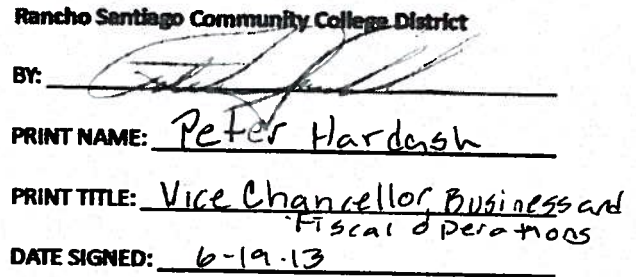 Rancho Santiago Community College District
BY:
PRINT NAME: Peter Hardash
PRINT TITLE: Vice Chancellor, Business and
Fiscal Operations
DATE SIGNED: 6-19-13